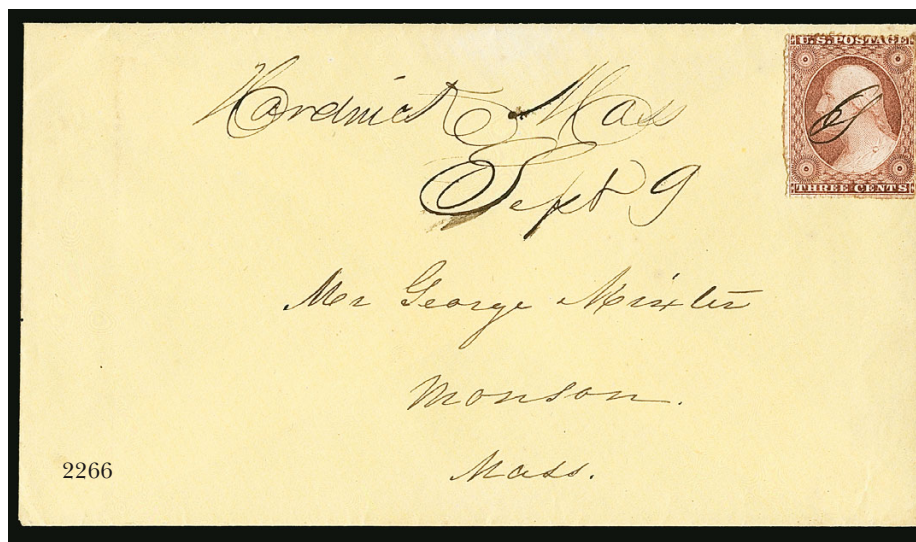 Hardwick Mass
Sept 9
U.S. POSTAGE
THREE CENTS
Mr George Mixter
Monson.
Mass.
2266